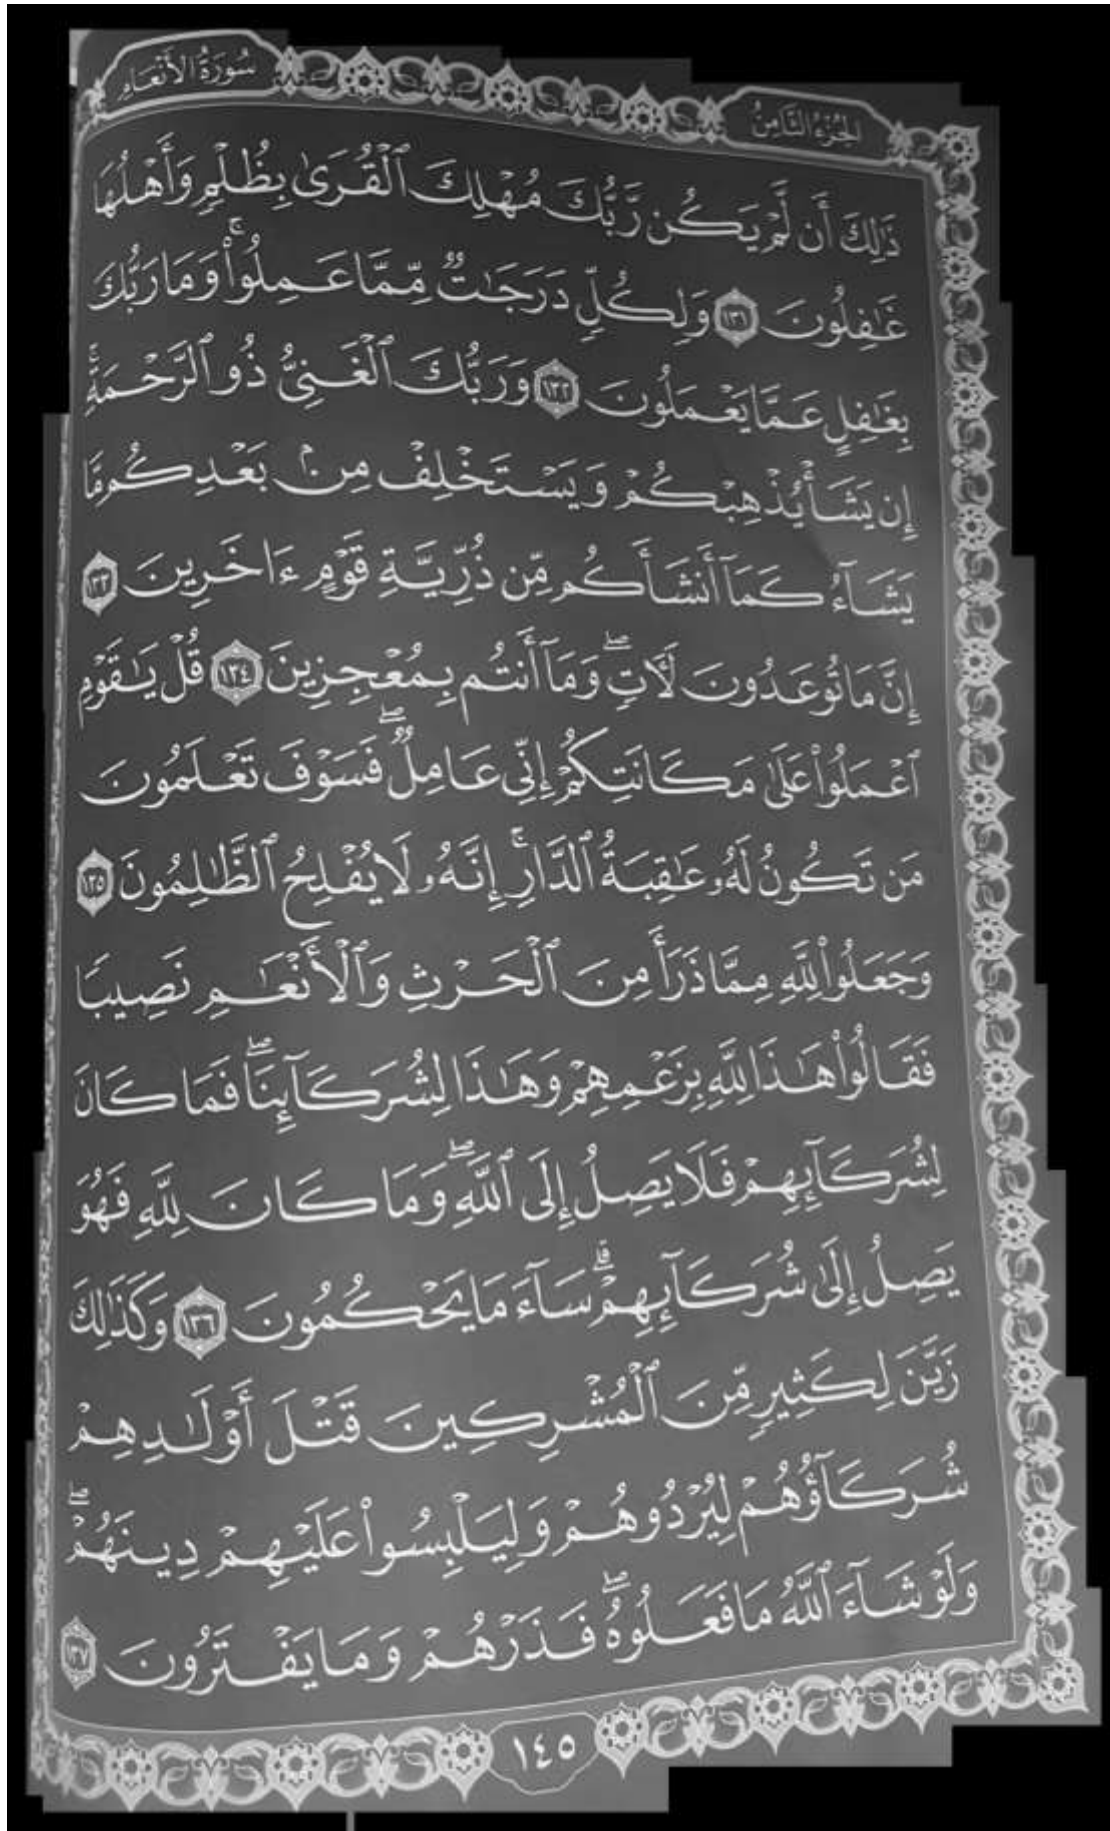 الجُزْءُ الثَّامِنُ
سُورَةُ الأَنْعَامِ
ذَٰلِكَ أَن لَّمْ يَكُن رَّبُّكَ مُهْلِكَ ٱلْقُرَىٰ بِظُلْمٍ وَأَهْلُهَا
غَٰفِلُونَ ١٣١ وَلِكُلٍّ دَرَجَٰتٌ مِّمَّا عَمِلُوا۟ۚ وَمَا رَبُّكَ
بِغَٰفِلٍ عَمَّا يَعْمَلُونَ ١٣٢ وَرَبُّكَ ٱلْغَنِىُّ ذُو ٱلرَّحْمَةِۚ
إِن يَشَأْ يُذْهِبْكُمْ وَيَسْتَخْلِفْ مِنۢ بَعْدِكُم مَّا
يَشَآءُ كَمَآ أَنشَأَكُم مِّن ذُرِّيَّةِ قَوْمٍ ءَاخَرِينَ ١٣٣
إِنَّ مَا تُوعَدُونَ لَءَاتٍۖ وَمَآ أَنتُم بِمُعْجِزِينَ ١٣٤ قُلْ يَٰقَوْمِ
ٱعْمَلُوا۟ عَلَىٰ مَكَانَتِكُمْ إِنِّى عَامِلٌۖ فَسَوْفَ تَعْلَمُونَ
مَن تَكُونُ لَهُۥ عَٰقِبَةُ ٱلدَّارِۚ إِنَّهُۥ لَا يُفْلِحُ ٱلظَّٰلِمُونَ ١٣٥
وَجَعَلُوا۟ لِلَّهِ مِمَّا ذَرَأَ مِنَ ٱلْحَرْثِ وَٱلْأَنْعَٰمِ نَصِيبًا
فَقَالُوا۟ هَٰذَا لِلَّهِ بِزَعْمِهِمْ وَهَٰذَا لِشُرَكَآئِنَاۖ فَمَا كَانَ
لِشُرَكَآئِهِمْ فَلَا يَصِلُ إِلَى ٱللَّهِۖ وَمَا كَانَ لِلَّهِ فَهُوَ
يَصِلُ إِلَىٰ شُرَكَآئِهِمْۗ سَآءَ مَا يَحْكُمُونَ ١٣٦ وَكَذَٰلِكَ
زَيَّنَ لِكَثِيرٍ مِّنَ ٱلْمُشْرِكِينَ قَتْلَ أَوْلَٰدِهِمْ
شُرَكَآؤُهُمْ لِيُرْدُوهُمْ وَلِيَلْبِسُوا۟ عَلَيْهِمْ دِينَهُمْۖ
وَلَوْ شَآءَ ٱللَّهُ مَا فَعَلُوهُۖ فَذَرْهُمْ وَمَا يَفْتَرُونَ ١٣٧
١٤٥